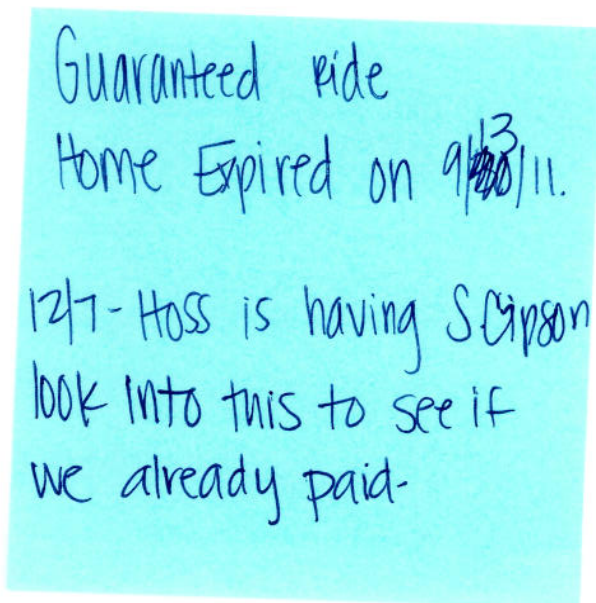 Guaranteed ride
Home Expired on 9/13/11.
12/7 - Hoss is having S Gipson
look into this to see if
we already paid-